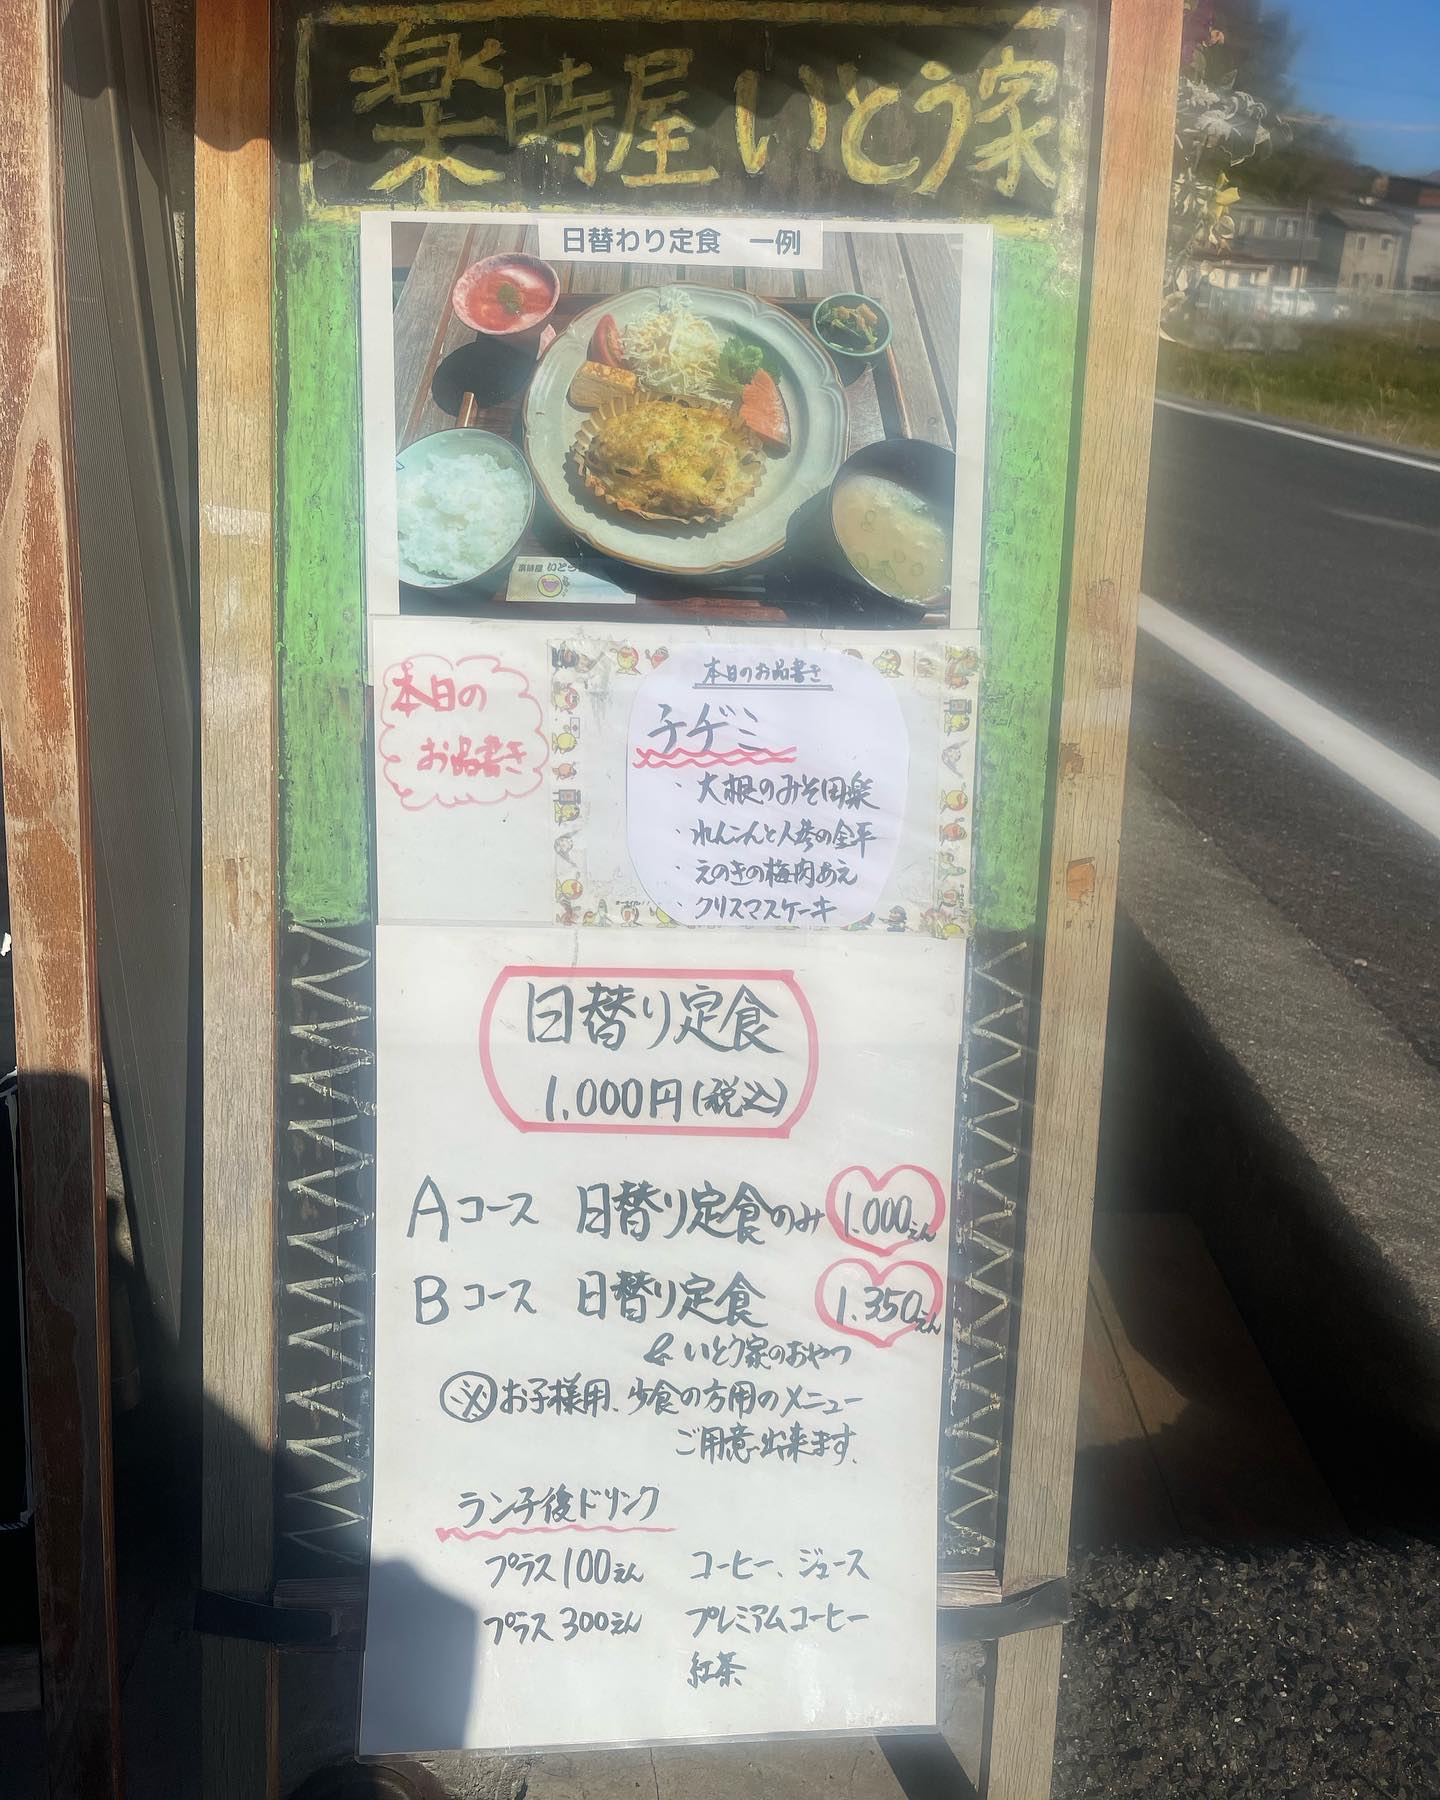 楽時屋 いとう家
日替わり定食 一例
楽時屋 いとう
本日の
お品書き
本日のお品書き
チヂミ
・大根のみそ田楽
・れんこんと人参の金平
・えのきの梅肉あえ
・クリスマスケーキ
日替り定食
1.000円(税込)
Aコース 日替り定食のみ 1.000えん
Bコース 日替り定食 1.350えん
& いとう家のおやつ
※お子様用、少食の方用のメニュー
ご用意出来ます。
ランチ後ドリンク
プラス100えん コーヒー、ジュース
プラス300えん プレミアムコーヒー
紅茶